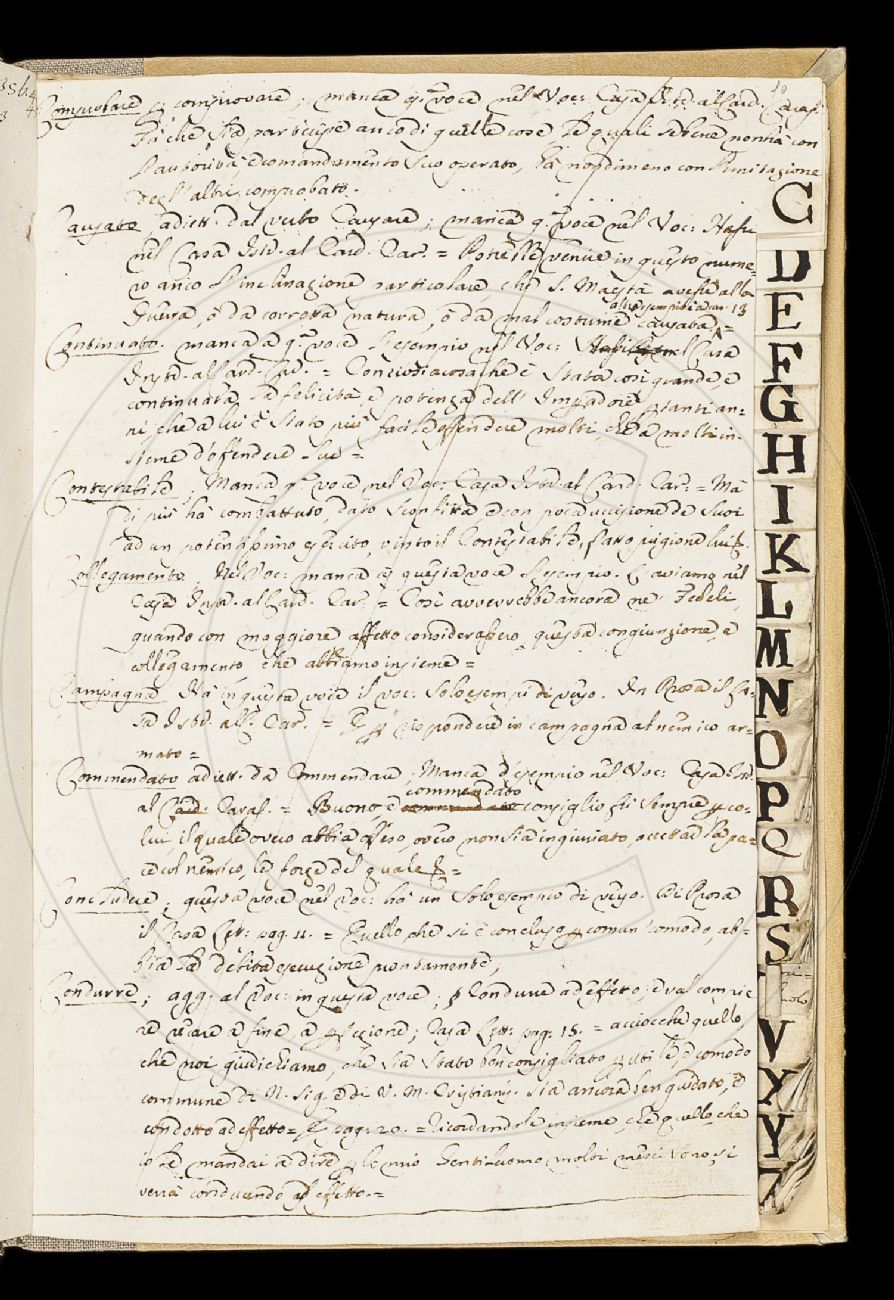 Comprobare p comprovare; manca q.ᵃ voce nel Voc: Casa Ist. al Card. Caraf.
Fà che sia partecipe anco di quelle cose le quali sebene non hà con
l'autorità e comandamento suo operato, hà nondimeno con l'imitazione
degl'altri comprobato.
Causato, adiett. dal verbo Causare; manca q.ᵃ voce nel Voc:
nel Casa Istr. al Card. Car. = Potrebbe venire in questo nume-
ro anco l'inclinazione particolare, che S. Maestà avesse alla
Guerra, ò da corrotta natura, ò da mal costume causata =
altro esempio è a car. 13
Continuato. manca a q.ᵃ voce l'esempio nel Voc: nel Casa
Instr. al Card. Car. = Conciosiacosa che è stata così grande, e
continuata, la felicità, e potenza dell' Imperadore p tanti an-
ni, che a lui è stato più facile offendere molti, che a molti in-
sieme d'offendere lui =
Contestabile; Manca q.ᵃ voce nel Voc: Casa Istr. al Card. Car. = Mà
di più hà combattuto, dato sconfitta e con poca uccisione de suoi
ad un potentissimo esercito, vinto il Contestabile, fatto prigione lui
Collegamento. Nel Voc: manca a questa voce l'esempio. L'aviamo nel
Casa Instr. al Card. Car. = Così avverrebbe ancora ne' Fedeli,
quando con maggiore affetto considerassero questa congiunzione, e
collegamento che abbiamo insieme =
Campagna Hà in questa voce il voc: solo esempi di verso. In Prosa il Ca-
sa Istr. al C. Car. = E p rispondere in campagna al nemico ar-
mato =
Commendato adiett. da Commendare, Manca d'esempio nel Voc: Casa Istr.
al Card. Caraf. = Buono, e commendato consiglio fù sempre p co-
lui il quale overo abbia offeso, overo non sia ingiuriato, accettar la pa-
ce col nemico, le forze del quale &c =
Concludere; questa voce nel Voc: hà un solo esempio di verso. Di Prosa
il Casa Lett: pag. 11. = Quello che si è concluso p comun comodo, ab-
bia la debita esecuzione prontamente;
Condurre; agg: al Voc: in questa voce; Condurre ad effetto; e val compire
re tirare a fine, a pfezione; Casa Lett: pag. 15. = acciocche quello,
che noi giudichiamo, che sia stato ben consigliato p utile, e comodo
commune di N. Sig. e di V. M. Cristianis. sia ancora ben guidato, e
condotto ad effetto = E pag. 20. = Ricordandole insieme che quello che
io le mandai a dire p lo mio Gentiluomo molti mesi sono, si
verrà conducendo ad effetto. =
C
D
E
F
G
H
I
K
L
M
N
O
P
Q
R
S
V
X
Y
Z